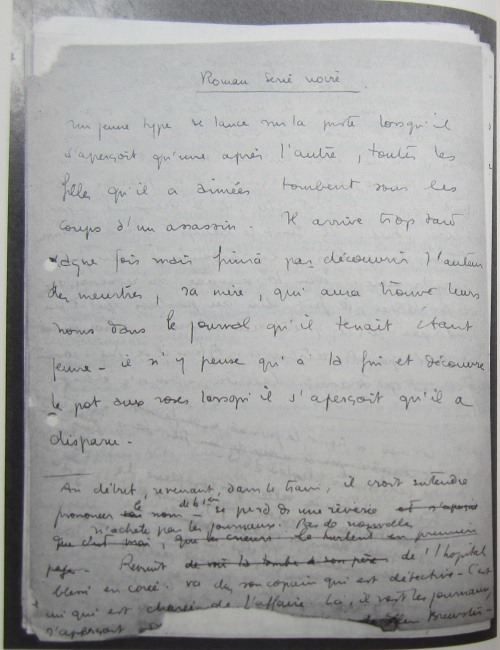 Roman Série noire
Un jeune type se lance sur la piste lorsqu'il
s'aperçoit qu'une après l'autre, toutes les
filles qu'il a aimées tombent sous les
coups d'un assassin. Il arrive trop tard
chaque fois mais finira par découvrir l'auteur
des meurtres, sa mère, qui aura trouvé leurs
noms dans le journal qu'il tenait étant
jeune - il n'y pense qu'à la fin et découvre
le pot aux roses lorsqu'il s'aperçoit qu'il a
disparu -
Au début, revenant dans le train, il croit entendre
prononcer le nom se perd ds une rêverie et s'aperçoit
n'achète pas les journaux. Pas de nouvelles
que c'est vrai, que les crieurs le hurlent en première
page - Revient de voir la tombe de son père de l'hôpital
blessé en corée. va chez son copain qui est détective - C'est
lui qui est chargé de l'affaire. Là, il voit les journaux
s'aperçoit Brewster -